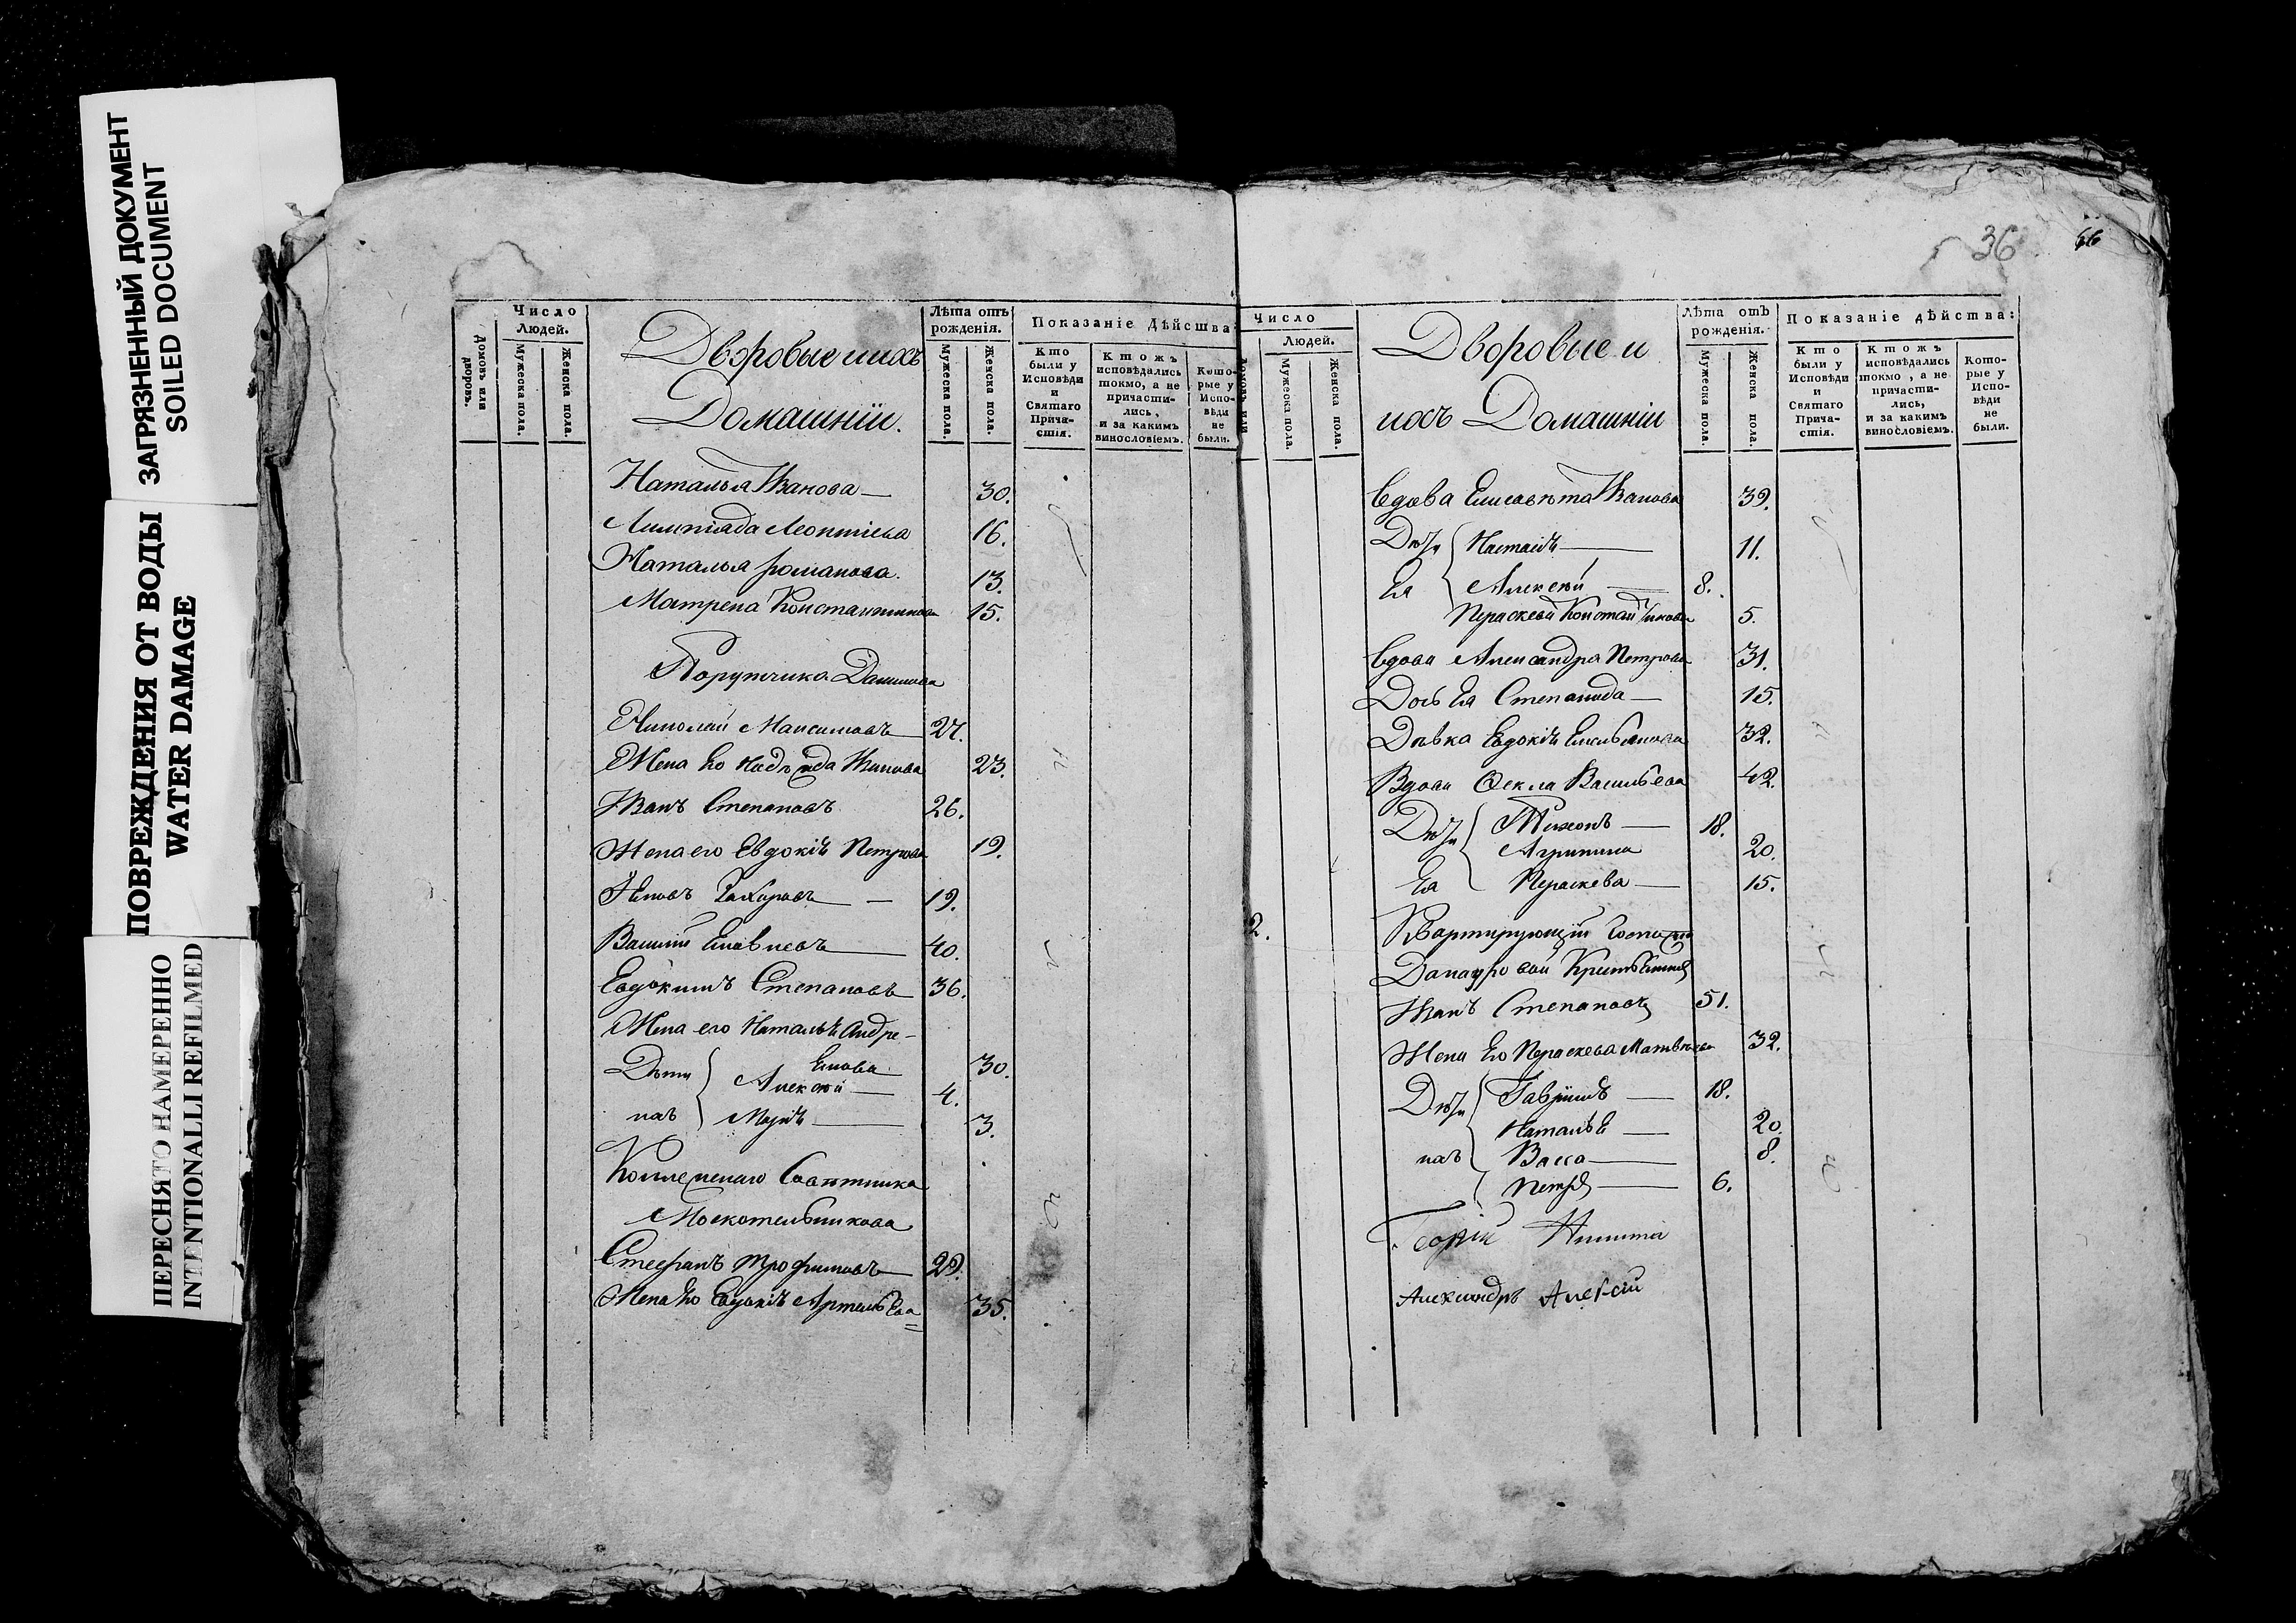 ЗАГРЯЗНЕННЫЙ ДОКУМЕНТ
SOILED DOCUMENT
ПОВРЕЖДЕНИЯ ОТ ВОДЫ
WATER DAMAGE
ПЕРЕСНЯТО НАМЕРЕННО
INTENTIONALLI REFILMED
Домовъ или дворовъ.
Число Людей.
Мужеска пола.
Женска пола.
Дворовые ихъ
Домашнiи.
Лѣта отъ рожденiя.
Мужеска пола.
Женска пола.
Показанiе дѣйства:
Кто были у Исповѣди и Святаго Причастiя.
Ктожъ исповѣдались токмо, а не причастились, и за какимъ винословiемъ.
Которые у Исповѣди не были.
Наталья Иванова — 30.
Алимпiада Леонтiева 16.
Наталья романова. 13.
Матрена Константинова 15.
Порутчика Данилова
Николай Максимовъ 27.
Жена Его Надѣжда Иванова 23.
Иванъ Степановъ 26.
Жена его Евдокiя Петрова 19.
Захаровъ — 19.
Василiй 40.
Евдокимъ Степановъ 36.
Жена его Наталья Андре-
Дѣти Елова 30.
Алексѣй — 4.
ихъ Марiя — 3.
Коллежскаго Совѣтника
Москотельникова
Стефанъ трофимовъ 29.
Жена Его Евдокiя Артемьева 35.
36
Число Людей.
Мужеска пола.
Женска пола.
Дворовые и
ихъ Домашнiи
Лѣта отъ рожденiя.
Мужеска пола.
Женска пола.
Показанiе дѣйства:
Кто были у Исповѣди и Святаго Причастiя.
Ктожъ исповѣдались токмо, а не причастились, и за какимъ винословiемъ.
Которые у Исповѣди не были.
Вдова Елисавѣта Иванова 39.
Дѣти Настасiя — 11.
Ея Алексѣй — 8.
Параскева Константинова 5.
Вдова Александра Петрова 31.
Дочь Ея Степанида — 15.
Дѣвка Евдокiя Емельянова 32.
Вдова Ѳекла Васильева 42.
Дѣти Тихонъ — 18.
Агрипина 20.
Ея Параскева — 15.
2. Квартирующiй Госпожи
Иванъ Степановъ 51.
Жена Его Параскева Матвѣева 32.
Дѣти Гаврiилъ — 18.
Наталья — 20.
ихъ Васса — 8.
Петръ — 6.
Никита
Александръ Алексiй